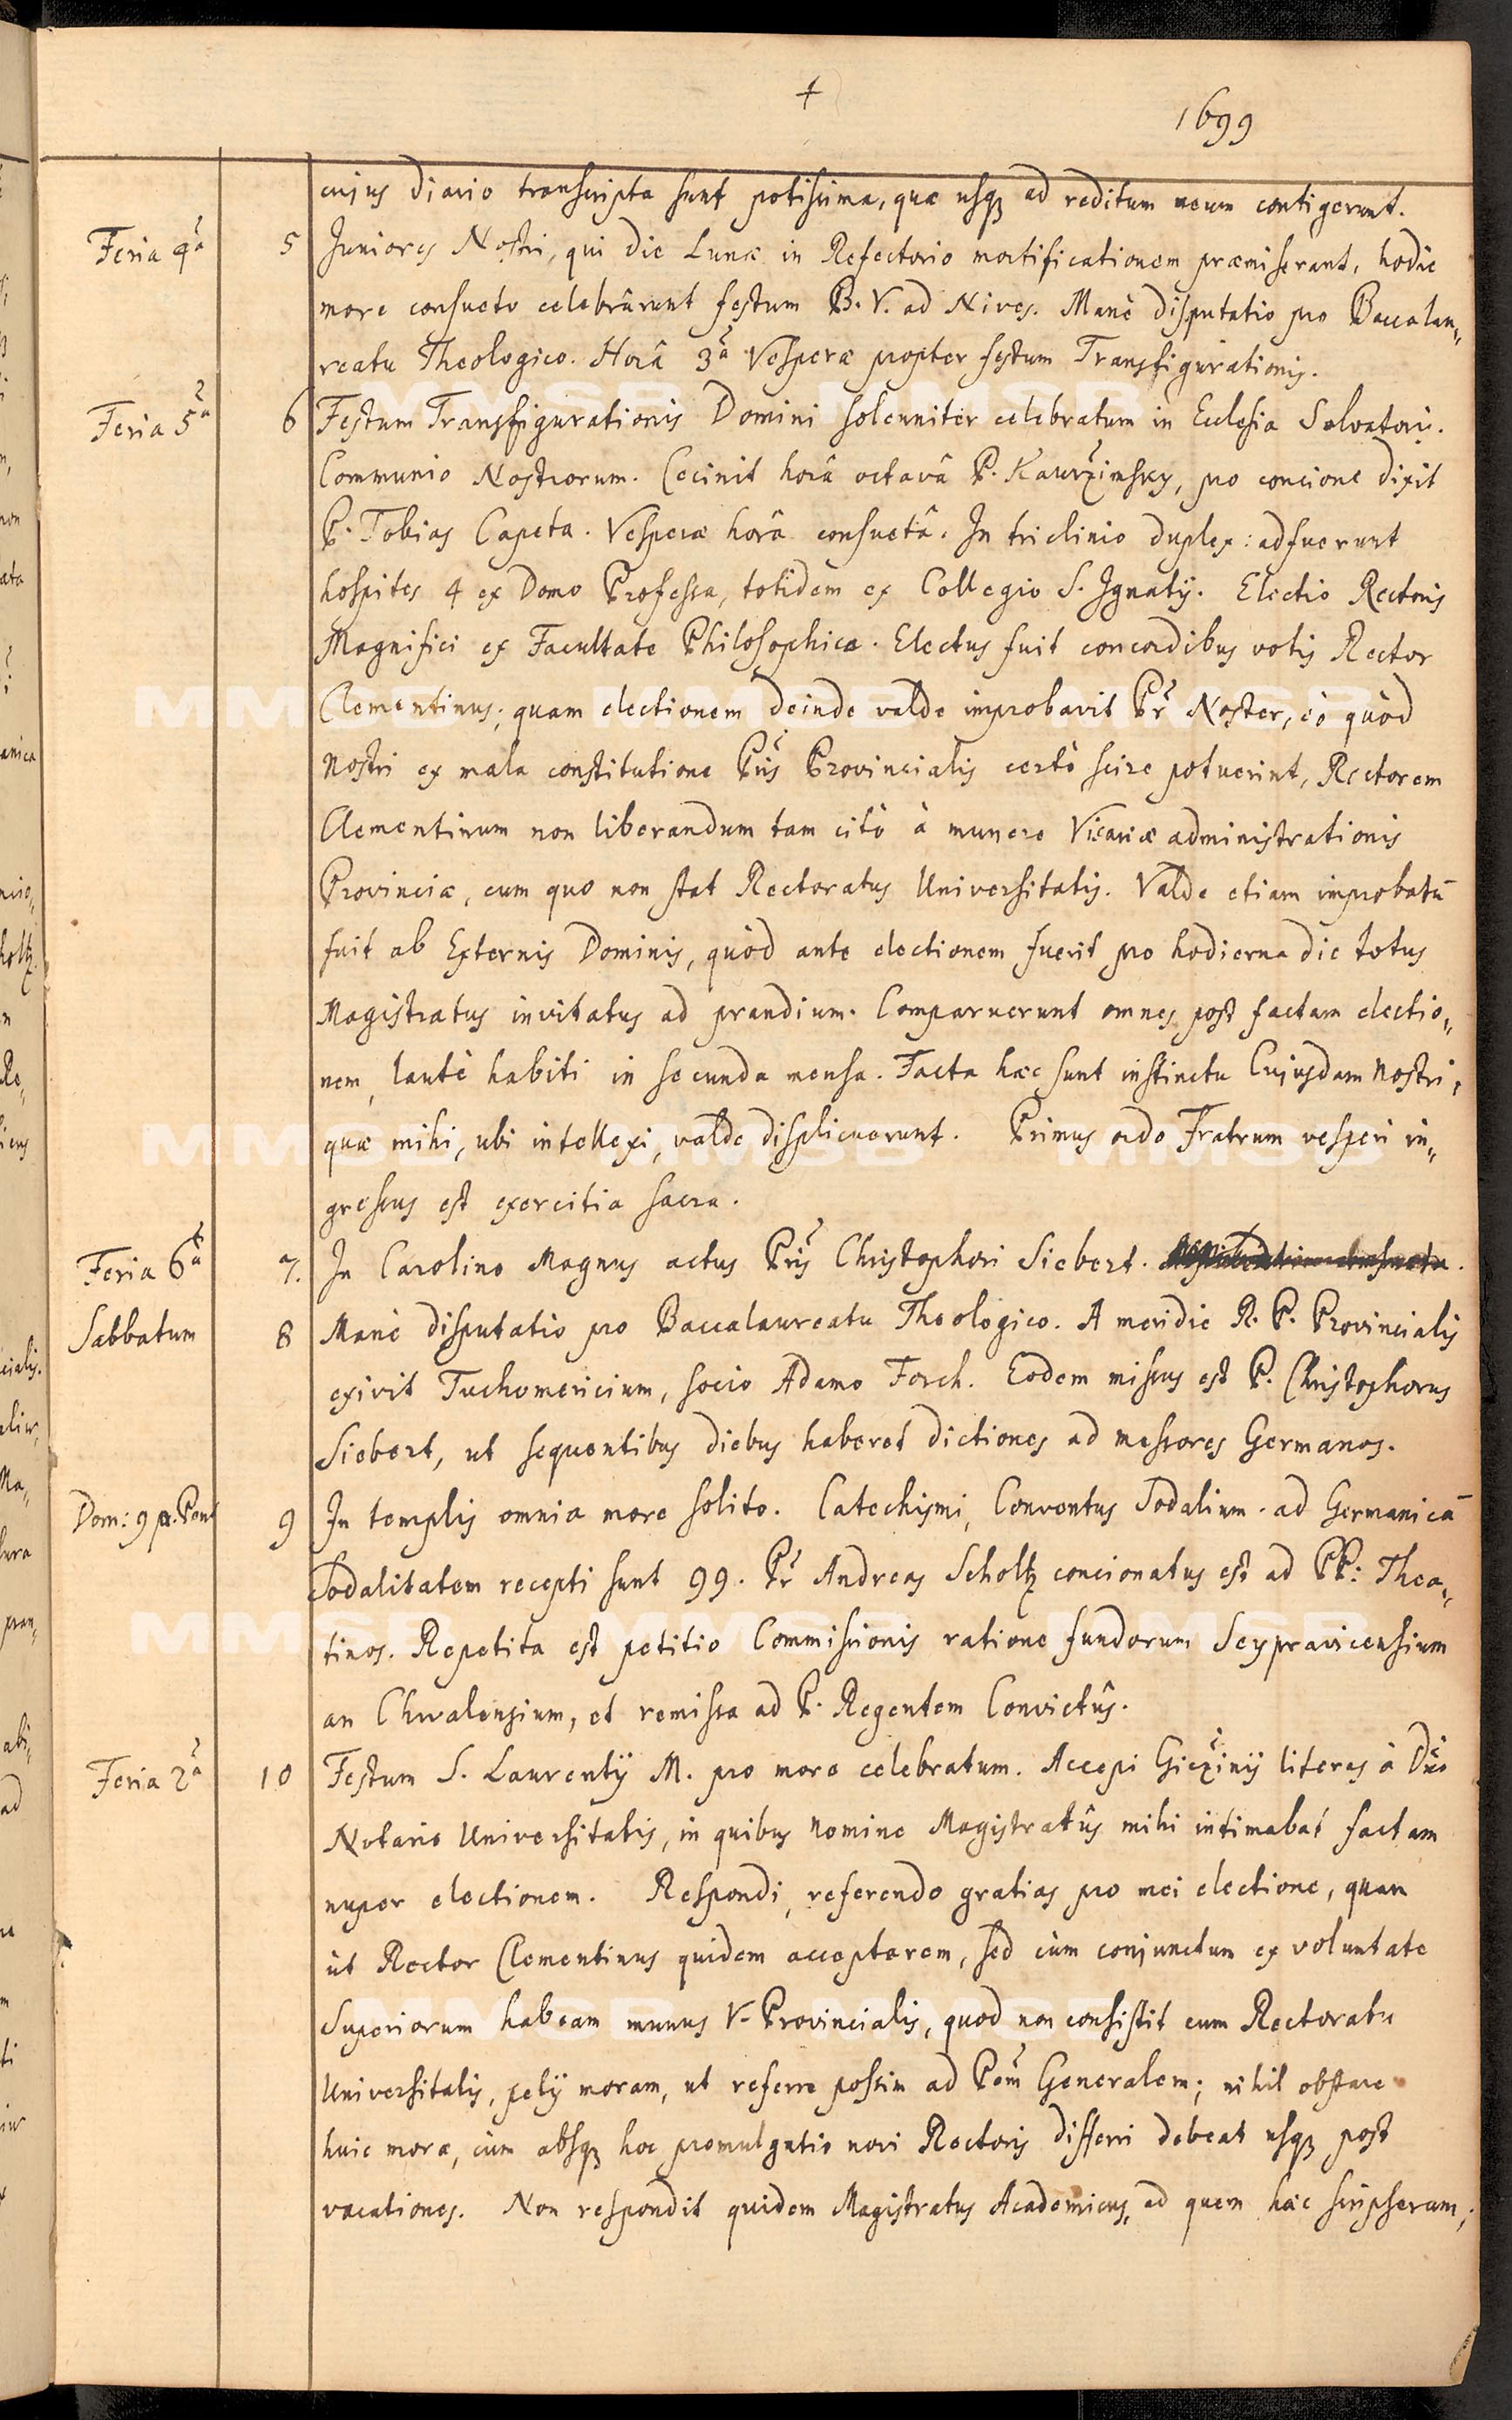 †
1699
cujus diario transcripta sunt potissima, quæ usq; ad reditum meum contigerunt.
Feria 4ta 5 Juniores Nostri, qui die Lunæ in Refectorio mortificationem præmiserant, hodie
more consueto celebrârunt festum B. V. ad Nives. Manè disputatio pro Baccalau„
reatu Theologico. Horâ 3tia Vesperæ propter festum Transfigurationis.
Feria 5ta 6 Festum Transfigurationis Domini solenniter celebratum in Ecclesia Salvatoris.
Communio Nostrorum. Cecinit horâ octavâ P. Kaurzimsky, pro concione dixit
P. Tobias Capeta. Vesperæ horâ consuetâ. In triclinio duplex: adfuerunt
hospites 4 ex Domo Professa, totidem ex Collegio S. Ignatij. Electio Rectoris
Magnifici ex Facultate Philosophica. Electus fuit concordibus votis Rector
Clementinus; quam electionem deinde valde improbavit Pr Noster, eò quòd
Nostri ex mala constitutione Pris Provincialis certò scire potuerint, Rectorem
Clementinum non liberandum tam citò à munere Vicariæ administrationis
Provinciæ, cum quo non stat Rectoratus Universitatis. Valde etiam improbatū
fuit ab Externis Dominis, quòd ante electionem fuerit pro hodierna die totus
Magistratus invitatus ad prandium. Comparuerunt omnes post factam electio„
nem, lautè habiti in secunda mensa. Facta hæc sunt instinctu Cujusdam Nostri;
quæ mihi, ubi intellexi, valde displicuerunt. Primus ordo Fratrum vesperi in„
gressus est exercitia sacra.
Feria 6ta 7. In Carolino Magnus actus Pris Christophori Siebert.
Sabbatum 8 Manè disputatio pro Baccalaureatu Theologico. A meridie R. P. Provincialis
exivit Tuchomericium, socio Adamo Forch. Eodem missus est P. Christophorus
Siebert, ut sequentibus diebus haberet dictiones ad messores Germanos.
Dom: 9 p. Pent 9 In templis omnia more solito. Catechismi, Conventus Sodalium. ad Germanicā
Sodalitatem recepti sunt 99. Pr Andreas Scholtz concionatus est ad PP: Thea„
tinos. Repetita est petitio Commissionis ratione fundorum Seypravicensium
an Chwalensium, et remissa ad P. Regentem Convictûs.
Feria 2da 10 Festum S. Laurentij M. pro more celebratum. Accepi Giczinij literas à Dno
Notario Universitatis, in quibus Nomine Magistratûs mihi intimabat factam
nuper electionem. Respondi, referendo gratias pro mei electione, quam
ut Rector Clementinus quidem acceptarem, sed cùm conjunctum ex voluntate
Superiorum habeam munus V-Provincialis, quod non consistit cum Rectoratu
Universitatis, petij moram, ut referre possim ad Pem Generalem; nihil obstare
huic moræ, cùm absq; hoc promulgatio novi Rectoris differri debeat usq; post
vacationes. Non respondit quidem Magistratus Academicus, ad quem hæc scripseram;